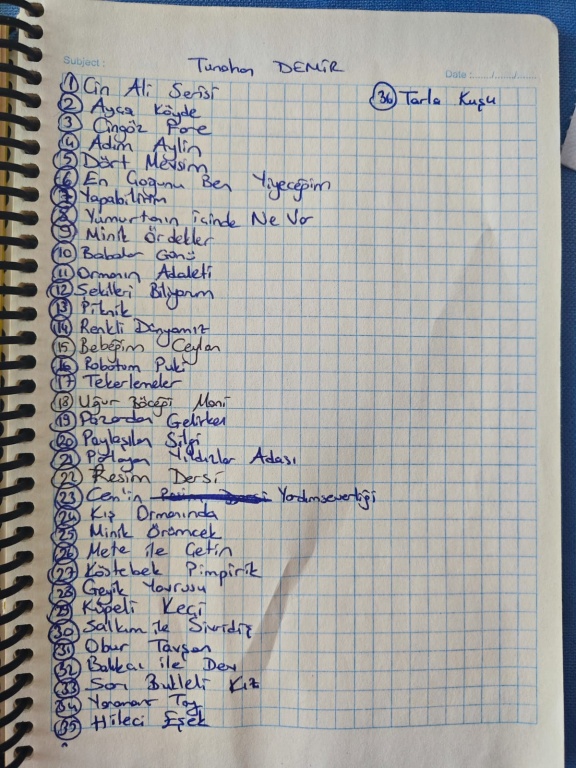 Subject :
Tunahan DEMİR
Date : ....../....../......
1 Cin Ali Serisi
2 Ayça Köyde
3 Cingöz Fare
4 Adım Aylin
5 Dört Mevsim
6 En Çoğunu Ben Yiyeceğim
7 Yapabilirim
8 Yumurtanın içinde Ne Var
9 Minik Ördekler
10 Babalar Günü
11 Ormanın Adaleti
12 Şekilleri Biliyorum
13 Piknik
14 Renkli Dünyamız
15 Bebeğim Ceylan
16 Robotum Puki
17 Tekerlemeler
18 Uğur Böceği Mani
19 Pazardan Gelirken
20 Paylaşılan Silgi
21 Parlayan Yıldızlar Adası
22 Resim Dersi
23 Cem'in Yardımseverliği
24 Kış Ormanında
25 Minik Örümcek
26 Mete ile Çetin
27 Köstebek Pimpirik
28 Geyik Yavrusu
29 Küpeli Keçi
30 Salkım ile Sivridiş
31 Obur Tavşan
32 Bakkal ile Dev
33 Sarı Bukleli Kız
34 Yaramaz Tay
35 Hileci Eşek
36 Tarla Kuşu